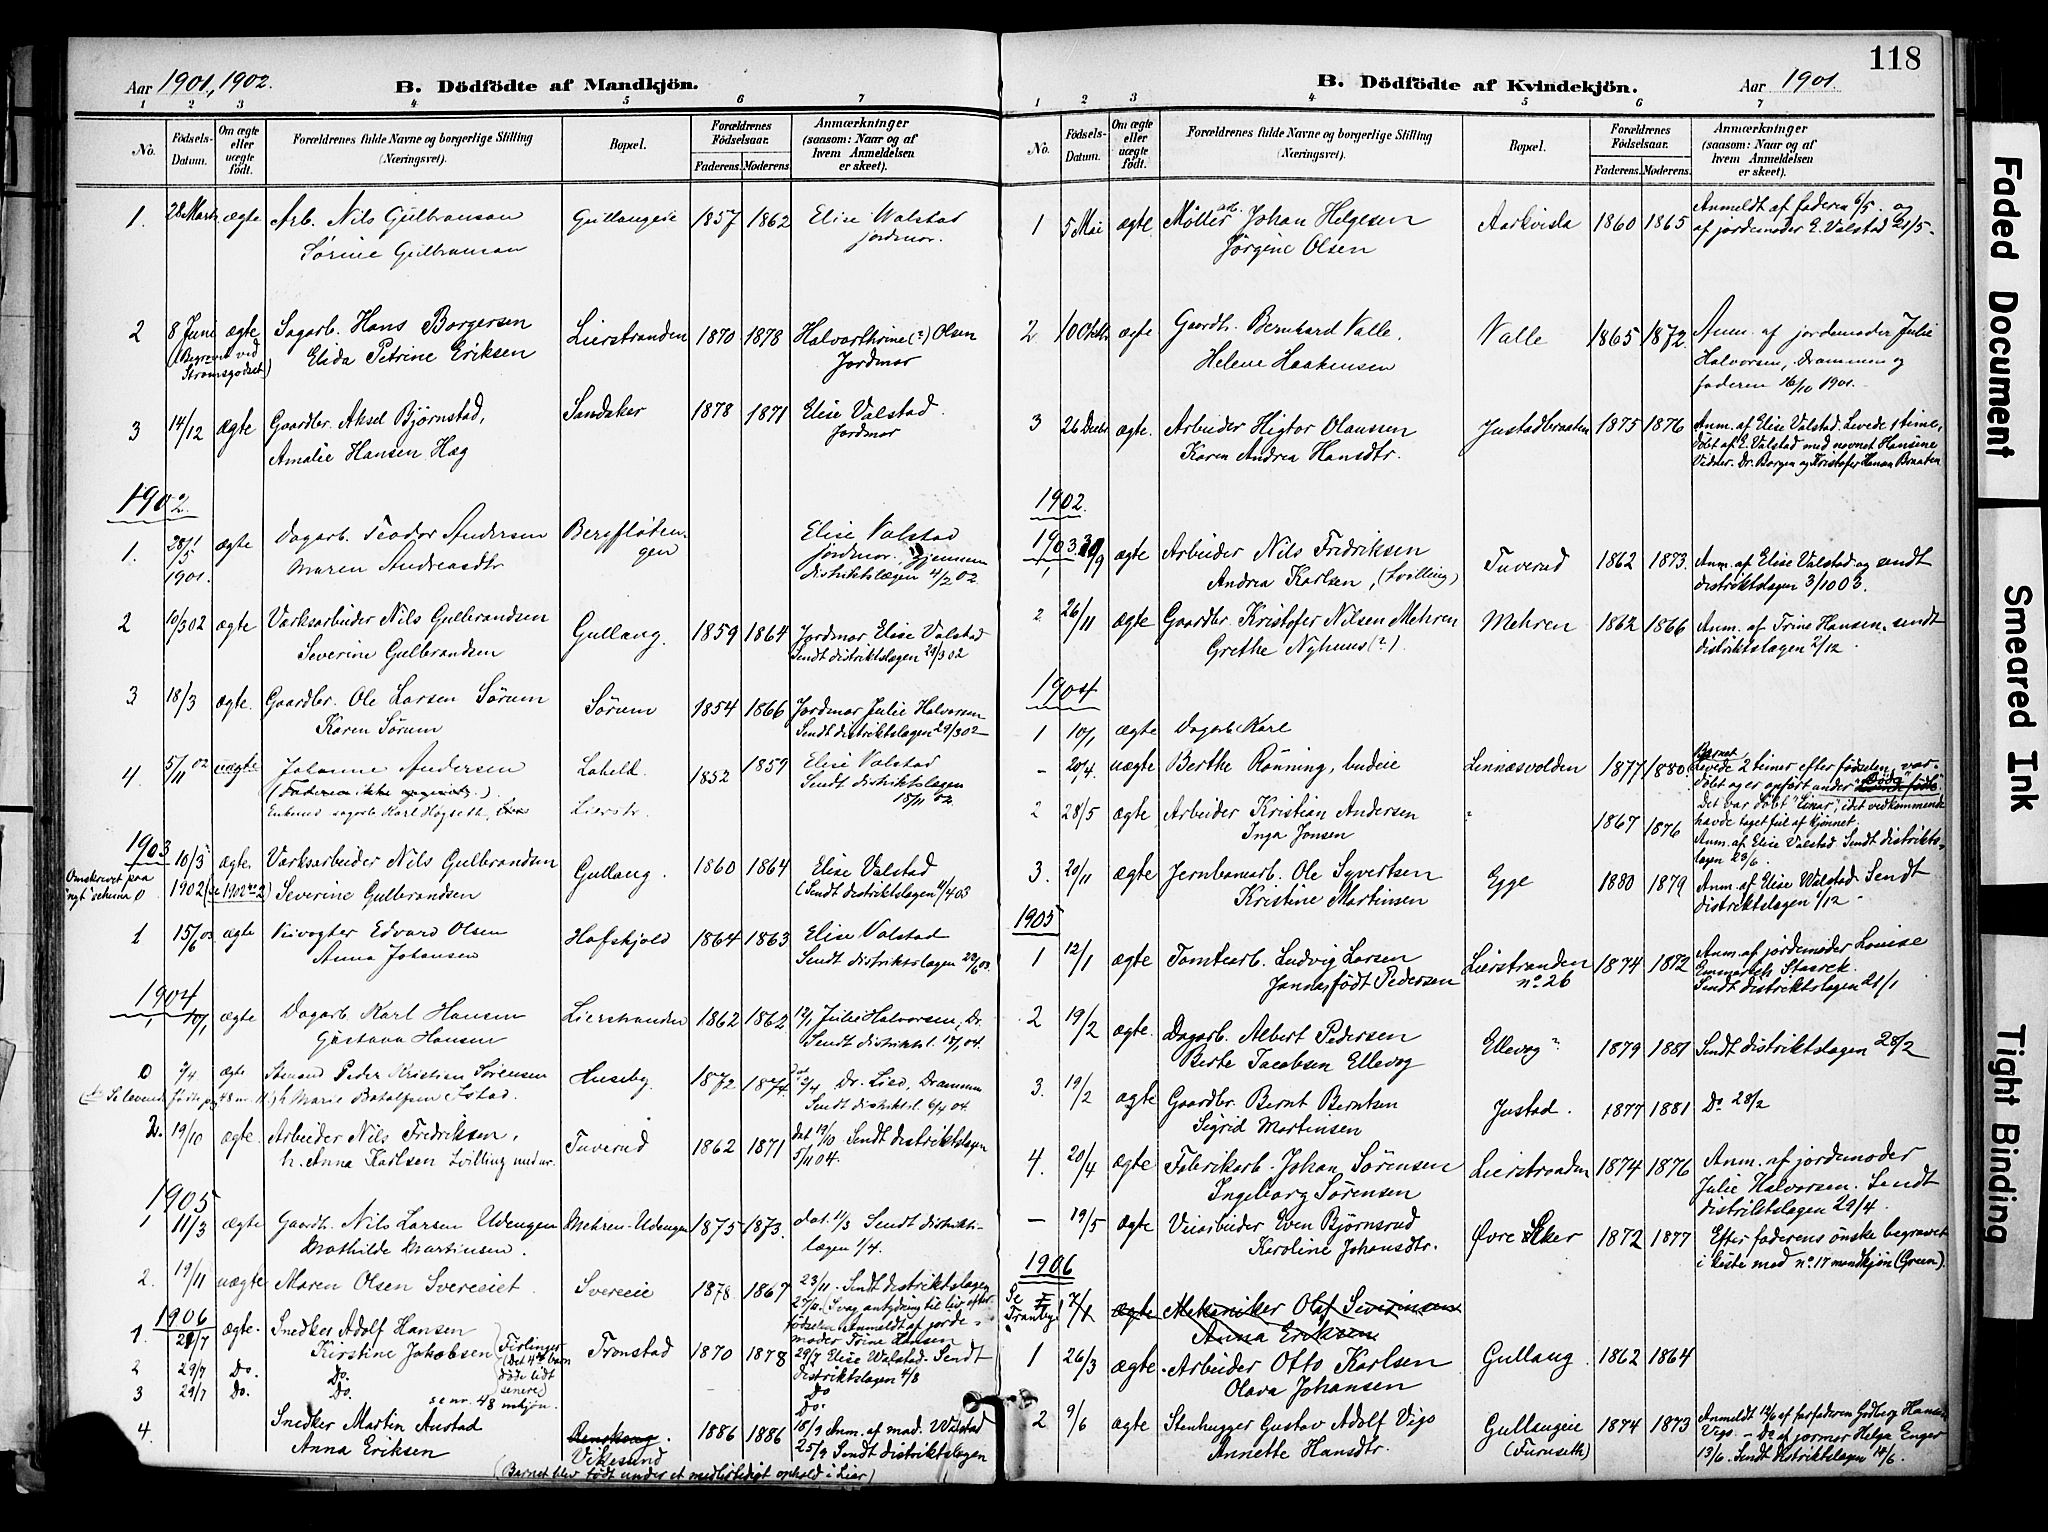 118
Aar 1901, 1902.
B. Dödfödte af Mandkjön.
1 2 3 4 5 6 7
No.
Födsels-Datum.
Om ægte eller uægte födt.
Forældrenes fulde Navne og borgerlige Stilling (Næringsvei).
Bopæl.
Forældrenes Födselsaar.
Faderens. Moderens.
Anmærkninger (saasom: Naar og af hvem Anmeldelsen er skeet).
1. 28 Marts ægte Arb. Nils Gulbransen 1857 1862 Elise Walstad
Sørine Gulbransen jordmor.
2 8 Juni ægte Sagarb. Hans Borgersen Lierstranden 1870 1878 Halvorthrine (?) Olsen
(Begravet ved Strømsgodset) Elida Petrine Eriksen Jordmor
3 14/12 ægte Gaardbr. Aksel Bjørnstad, Sandaker 1878 1871 Elise Valstad
Amalie Hansen Hæg Jordmor
1902
1. 28/5 1901. ægte Dagarb. Teodor Andersen Elise Valstad
Maren Andreasdtr jordmor, gjennem
distriktslægen 4/2 02
2 10/3 02 ægte Værksarbeider Nils Gulbrandsen Gullaug. 1859 1864 Jordmor Elise Valstad
Severine Gulbrandsen Sendt distriktslægen 29/3 02
3 18/3 ægte. Gaardbr. Ole Larsen Sørum Sørum 1854 1866 Jordmor Julie Halvorsen
Karen Sørum Sendt distriktslægen 29/3 02
4 5/11 02 uægte Johanne Andersen Laheld. 1852 1859 Elise Valstad
(Faderen ikke opgivet.) Sendt distriktslægen
Enkemd sagarb. Karl Høgseth, Lierstr. 15/11 02.
1903
10/3 ægte. Værksarbeider Nils Gulbrandsen Gullaug. 1860 1864 Elise Valstad
Omskrevet paa "nyt" schema 0 1902 (se 1902 no 2) Severine Gulbrandsen (Sendt distriktslægen 4/4 03
1 15/6 03 ægte Veivogter Edvard Olsen Hafskjold 1864 1863 Elise Valstad
Anna Johansen Sendt distriktslægen 22/6 03.
1904
1 10/1 ægte Dagarb Karl Hansen Lierstranden 1862 1862 12/1 Julie Halvorsen, Dr.
Gustava Hansen Sendt distriktsl. 18/1 04.
0 2/4. ægte Peder Kristian Sørensen Huseby. 1872 1874 Dr. Lied, Drammen
Sendt distriktsl. 6/4 04.
2. 19/10 ægte. Arbeider Nils Fredriksen, Tuverud 1862 1871 dat 19/10 Sendt distriktslægen
h. Anna Karlsen 5/11 04.
1905
1 11/3 ægte Gaardbr. Nils Larsen Udengen Mehren-Udengen 1875 1873. dat. 11/3 Sendt distrikts-
Mathilde Martinsen. lægen 1/4.
2. 19/11 uægte Maren Olsen Svereeiet Svereeie 1878 1867 23/11. Sendt distriktslægen
27/11. (Svag antydning til liv efter
fødselen Anmeldt af jorde-
moder Trine Hansen
1906
1. 29/7 ægte. Snedker Adolf Hansen (Firlinger Tronstad 1870 1878 29/7 Elise Walstad. Sendt
Kirstine Jakobsen (Det 4de barn distriktslægen 4/8
døde lidt senere)
2 29/7 Do. Do. Do
3 29/7 Do. Do. se nr. 48 mkjøn. Do.
4 Snedker Martin Austad 1886 1886 18/9 Anm. af mad. Valstad
Anna Eriksen Vikesund 25/9 Sendt distriktslægen
(Barnet blev født under et midlertidigt ophold i Lier)
B. Dödfödte af Kvindekjön.
Aar 1901.
1 2 3 4 5 6 7
No.
Födsels-Datum.
Om ægte eller uægte födt.
Forældrenes fulde Navne og borgerlige Stilling (Næringsvei).
Bopæl.
Forældrenes Födselsaar.
Faderens. Moderens.
Anmærkninger (saasom: Naar og af hvem Anmeldelsen er skeet).
1 5 Mai ægte Møller arb. Johan Helgesen Aarkvisla 1860 1865 Anmeldt af faderen 6/5. og
Jørgine Olsen af jordemoder E. Valstad 21/5.
2 10 Oktbr ægte Gaardb. Bernhard Valle. Valle 1865 1872 Anm. af jordemoder Julie
Helene Haakensen Halvorsen, Drammen og
faderen 16/10 1901.
3 26 Decbr ægte. Arbeider Higtor Olaussen Justadbraaten 1875 1876 Anm. af Elise Valstad. Levede 1 time,
Karen Andrea Hansdtr. døbt af E. Valstad med navnet Hansine
Vidner. Dr. Borgen og Kristofer Hansen Braaten
1902.
1903.
1 29/9 ægte Arbeider Nils Fredriksen Tuverud 1862 1873. Anm. af Elise Valstad og sendt
Andrea Karlsen, (tvilling) distriktslægen 3/10 03.
2 26/11 ægte Gaardbr. Kristofer Nilsen Mehren Mehren 1862 1866 Anm. af Trine Hansen. sendt
Grethe Nyhuus (?). distriktslægen 2/12.
1904
1 10/1 ægte Dagarb. Karl
- 20/4. uægte Berthe Rønning, budeie Linnæsvolden 1877 1880. Barnet Levede 2 timer efter fødselen, var
døbt og er opført under "Døde"
Det var døbt "Einar", idet vedkommende
havde taget feil af kjønnet.
2 28/5 ægte Arbeider Kristian Andersen " 1867 1876 Anm. af Elise Valstad Sendt distrikts-
Inga Jonsen lægen 23/6.
3. 20/11 ægte Jernbanearb. Ole Syvertsen Egge 1880 1879 Anm. af Elise Walstad. Sendt
Kristine Martinsen distriktslægen 1/12
1905
1 12/1 ægte Tomtearb. Ludvig Larsen Lierstranden 1874 1872 Anm. af jordemoder Louise
født Pedersen no. 26 Sendt distriktslægen 21/1
2 19/2 ægte. Dagarb. Albert Pedersen Ellevog 1879 1881 Sendt distriktslægen 28/2
Berte Jacobsen Ellevog
3. 19/2 ægte Gaardbr. Bernt Berntsen Justad. 1877 1881 Do 28/2
Sigrid Martensen
4. 20/4 ægte Fabrikarb. Johan Sørensen Lierstranden 1874 1876 Anm. af jordemoder
Ingeborg Sørensen Julie Halvorsen. Sendt
distriktslægen 29/4.
- 19/5 ægte Veiarbeider Even Bjørnsrud Øvre Eker 1872 1877 Efter faderens ønske begravet
Karoline Johansdtr. i kiste med no. 17 mandkjøn (Green).
1906
Se Tranby! 7/1 ægte Mekaniker Olaf Severinsen
Anna Eriksen
1 26/3 ægte. Arbeider Otto Karlsen Gullaug. 1862 1864
Olava Johansen
2 9/6 ægte Stenhugger Gustav Adolf Vigo Gullaugeie 1874 1873 Anmeldt 12/6 af farfaderen Hansen
Annette Hansdtr. (Furuseth) Vigo. - Do af jormor Helga Enger
13/6. Sendt Distriktslægen 14/6.
Faded Document
Smeared Ink
Tight Binding